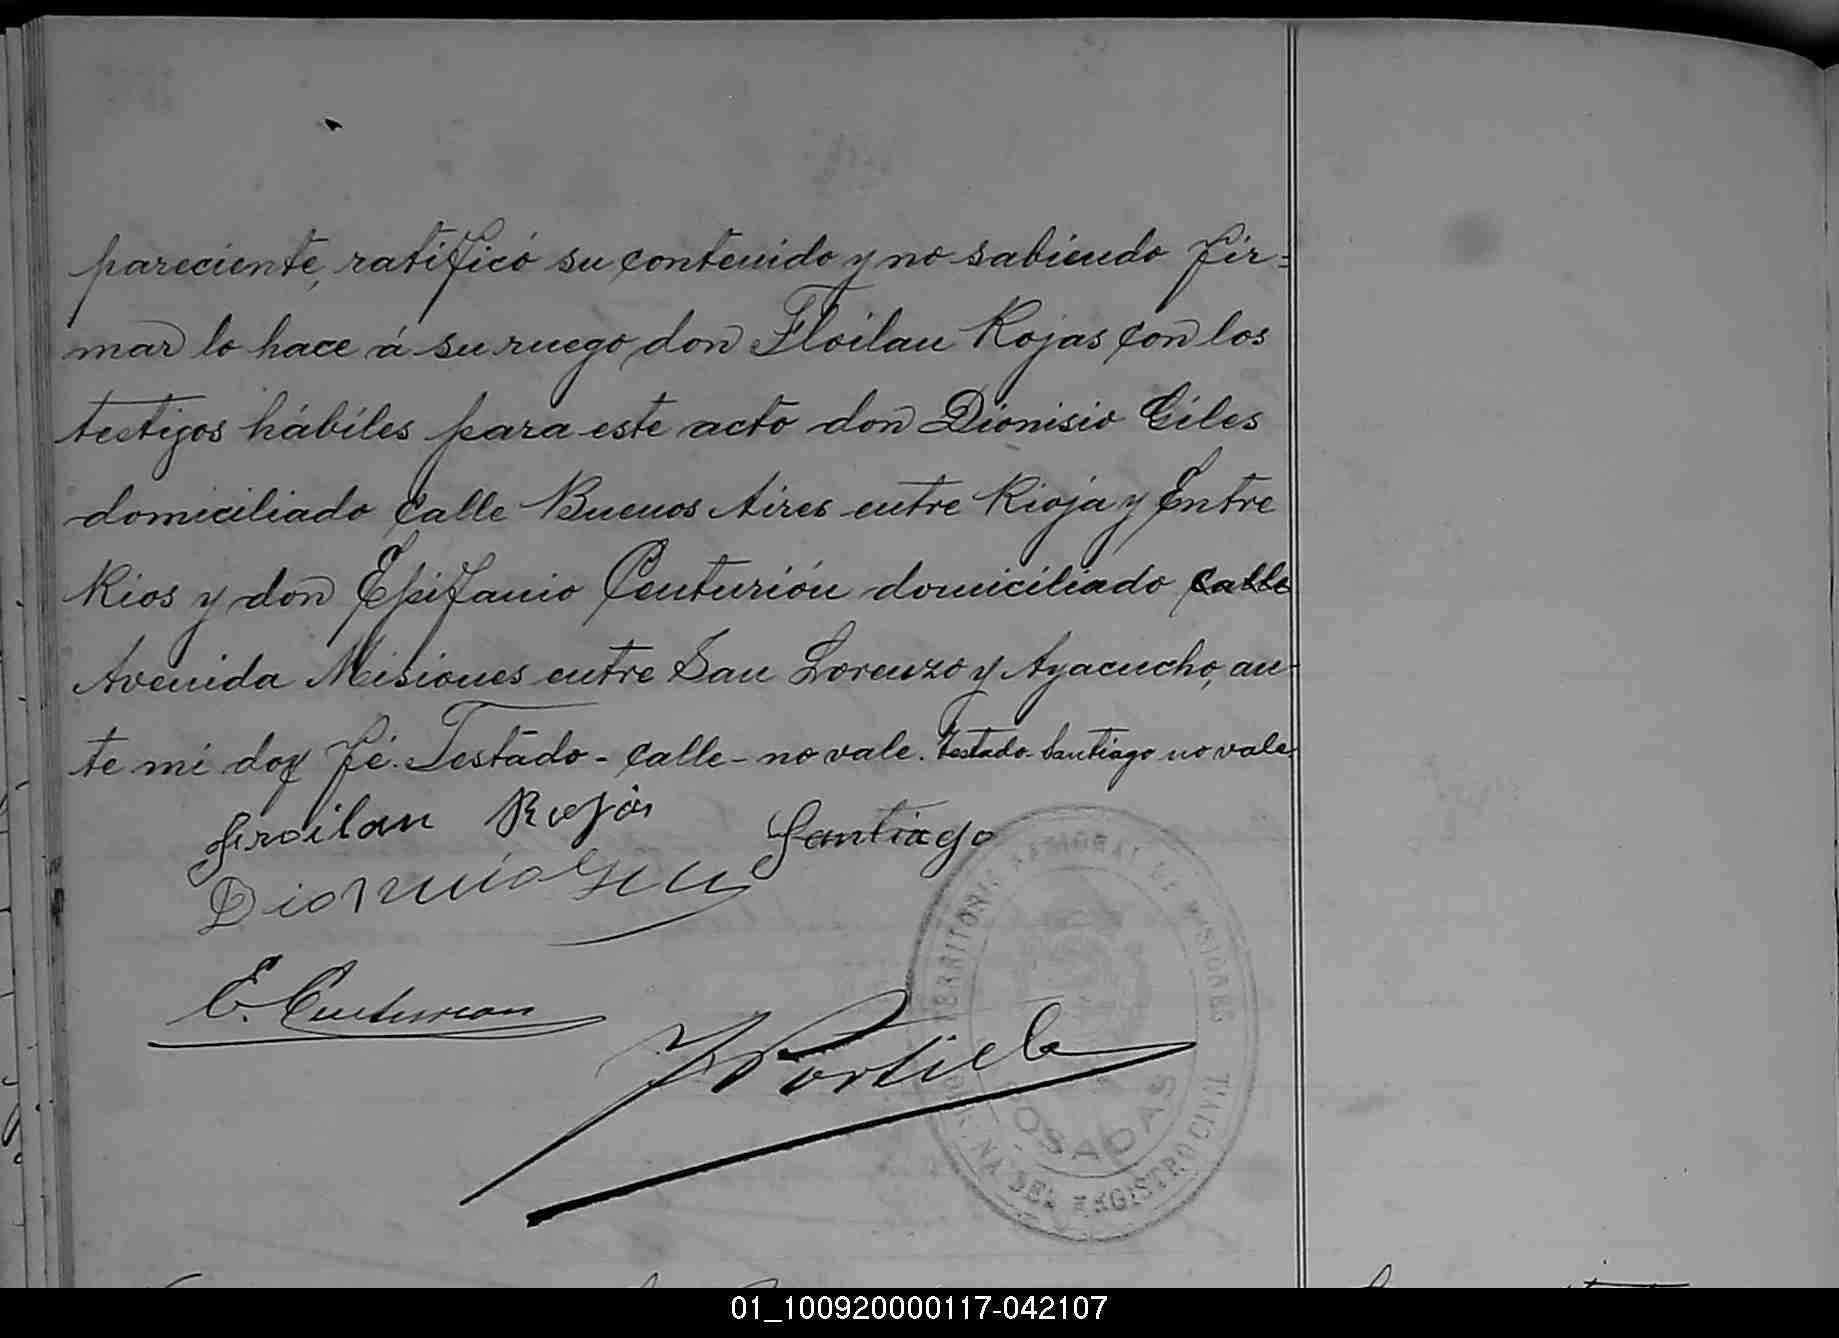 pareciente, ratificó su contenido y no sabiendo fir=
mar lo hace á su ruego don Floilan Rojas con los
testigos hábiles para este acto don Dionisio Giles
domiciliado calle Buenos Aires entre Rioja y Entre
Rios y don Epifanio Centurión domiciliado calle
Avenida Misiones entre San Lorenzo y Ayacucho, an-
te mi doy fé. Testado - calle - no vale. testado Santiago no vale.
Froilan Rojas Santiago
Dionisio Giles
E. Centurion
TERRITORIO NACIONAL DE MISIONES
POSADAS
OFICINA DEL REGISTRO CIVIL
01_100920000117-042107